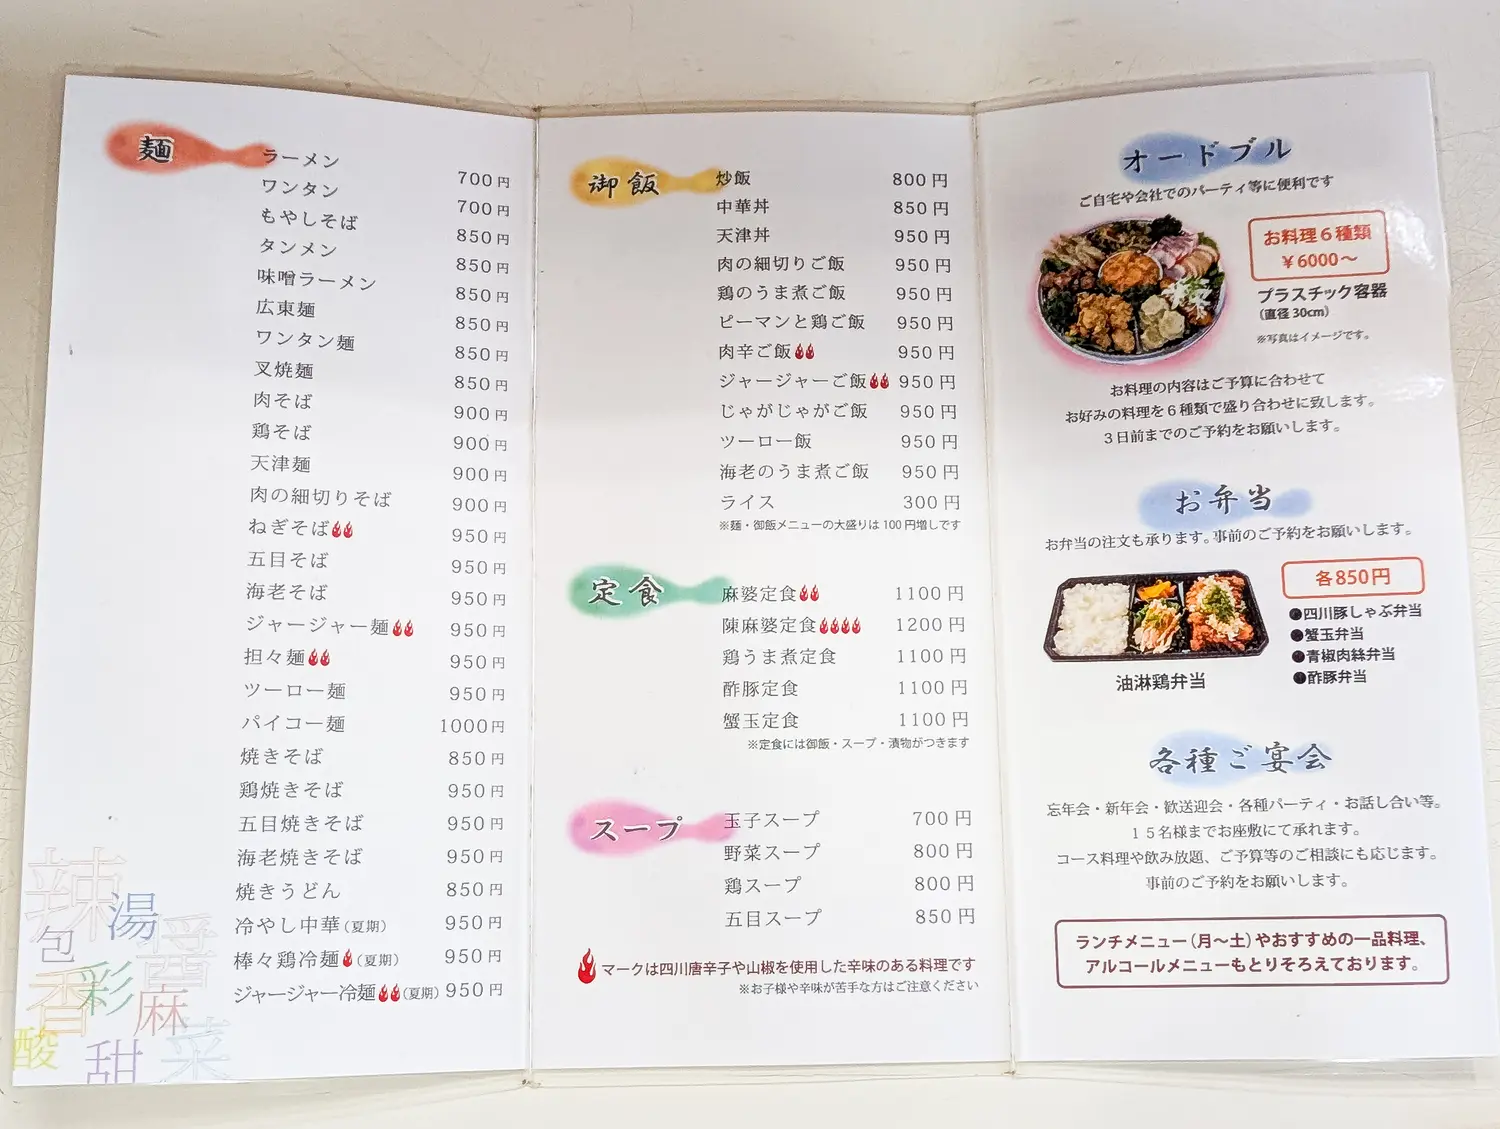 麺
ラーメン 700円
ワンタン 700円
もやしそば 850円
タンメン 850円
味噌ラーメン 850円
広東麺 850円
ワンタン麺 850円
叉焼麺 850円
肉そば 900円
鶏そば 900円
天津麺 900円
肉の細切りそば 900円
ねぎそば 950円
五目そば 950円
海老そば 950円
ジャージャー麺 950円
担々麺 950円
ツーロー麺 950円
パイコー麺 1000円
焼きそば 850円
鶏焼きそば 950円
五目焼きそば 950円
海老焼きそば 950円
焼きうどん 850円
冷やし中華(夏期) 950円
棒々鶏冷麺(夏期) 950円
ジャージャー冷麺(夏期) 950円
辣
湯
包
醤
香
彩
麻
酸
甜
菜
御飯
炒飯 800円
中華丼 850円
天津丼 950円
肉の細切りご飯 950円
鶏のうま煮ご飯 950円
ピーマンと鶏ご飯 950円
肉辛ご飯 950円
ジャージャーご飯 950円
じゃがじゃがご飯 950円
ツーロー飯 950円
海老のうま煮ご飯 950円
ライス 300円
※麺・御飯メニューの大盛りは100円増しです
定食
麻婆定食 1100円
陳麻婆定食 1200円
鶏うま煮定食 1100円
酢豚定食 1100円
蟹玉定食 1100円
※定食には御飯・スープ・漬物がつきます
スープ
玉子スープ 700円
野菜スープ 800円
鶏スープ 800円
五目スープ 850円
マークは四川唐辛子や山椒を使用した辛味のある料理です
※お子様や辛味が苦手な方はご注意ください
オードブル
ご自宅や会社でのパーティ等に便利です
お料理6種類
¥6000〜
プラスチック容器
(直径30cm)
※写真はイメージです。
お料理の内容はご予算に合わせて
お好みの料理を6種類で盛り合わせに致します。
3日前までのご予約をお願いします。
お弁当
お弁当の注文も承ります。事前のご予約をお願いします。
各850円
●四川豚しゃぶ弁当
●蟹玉弁当
●青椒肉絲弁当
●酢豚弁当
油淋鶏弁当
各種ご宴会
忘年会・新年会・歓送迎会・各種パーティ・お話し合い等。
15名様までお座敷にて承れます。
コース料理や飲み放題、ご予算等のご相談にも応じます。
事前のご予約をお願いします。
ランチメニュー(月〜土)やおすすめの一品料理、
アルコールメニューもとりそろえております。